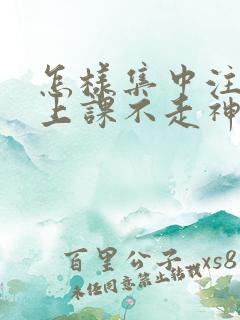 怎样集中注
上课不走神
百里公子 xs8
未经同意禁止转载